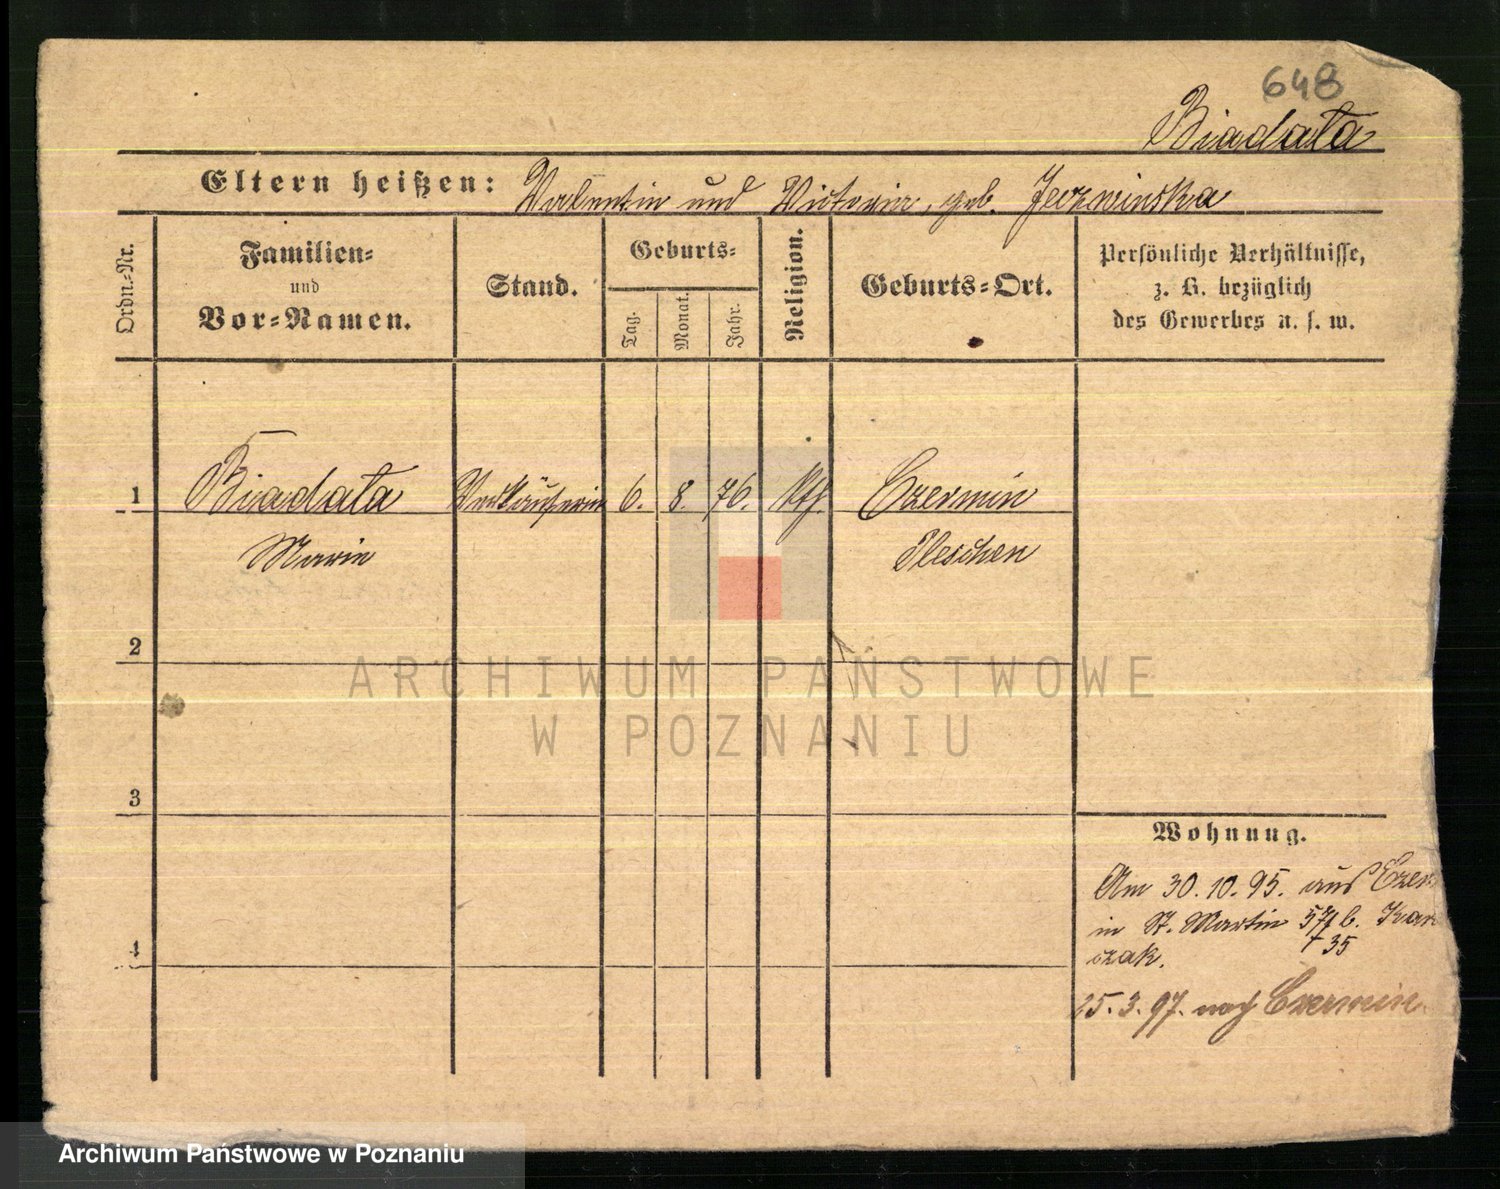 648
Biadała
Eltern heißen: Valentin und Victoria, geb. Jerzwinska
Ordn.-Nr.
Familien-
und
Vor-Namen.
Stand.
Geburts-
Tag.
Monat.
Jahr.
Religion.
Geburts-Ort.
Persönliche Verhältnisse,
z. B. bezüglich
des Gewerbes u. s. w.
1 Biadała Verkäuferin 6. 8. 76. kth. Czermin
Marie Pleschen
2
3
4
Wohnung.
Am 30.10.95. aus Czer
in St. Martin 57 b. Kar
czak. 35
25.3.97. nach Czermin
ARCHIWUM PAŃSTWOWE
W POZNANIU
Archiwum Państwowe w Poznaniu